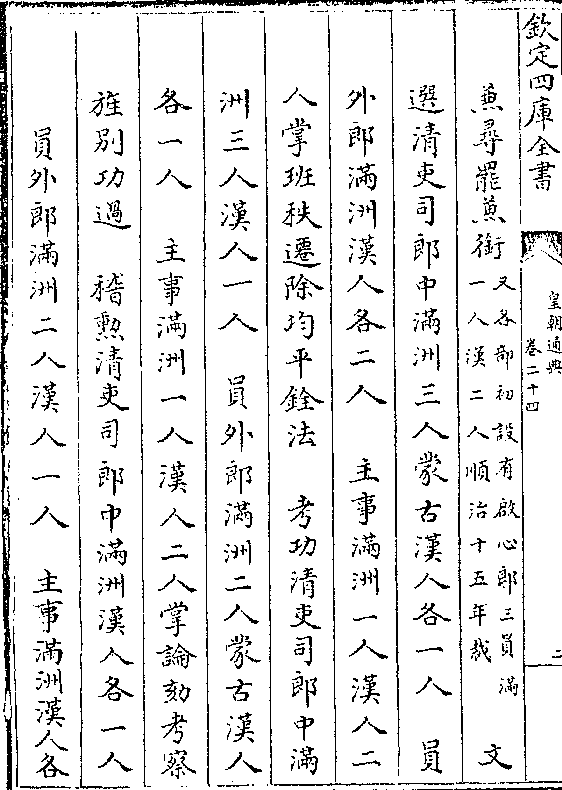 欽定四庫全書
皇朝通典
卷二十四
二
兼尋罷兼銜又各部初設有啟心郎三員滿
一人漢二人順治十五年裁
文
選清吏司郎中滿洲三人蒙古漢人各一人　員
外郎滿洲漢人各二人　主事滿洲一人漢人二
人掌班秩遷除均平銓法　考功清吏司郎中滿
洲三人漢人一人　員外郎滿洲二人蒙古漢人
各一人　主事滿洲一人漢人二人掌論劾考察
旌別功過　稽勲清吏司郎中滿洲漢人各一人
員外郎滿洲二人漢人一人　主事滿洲漢人各